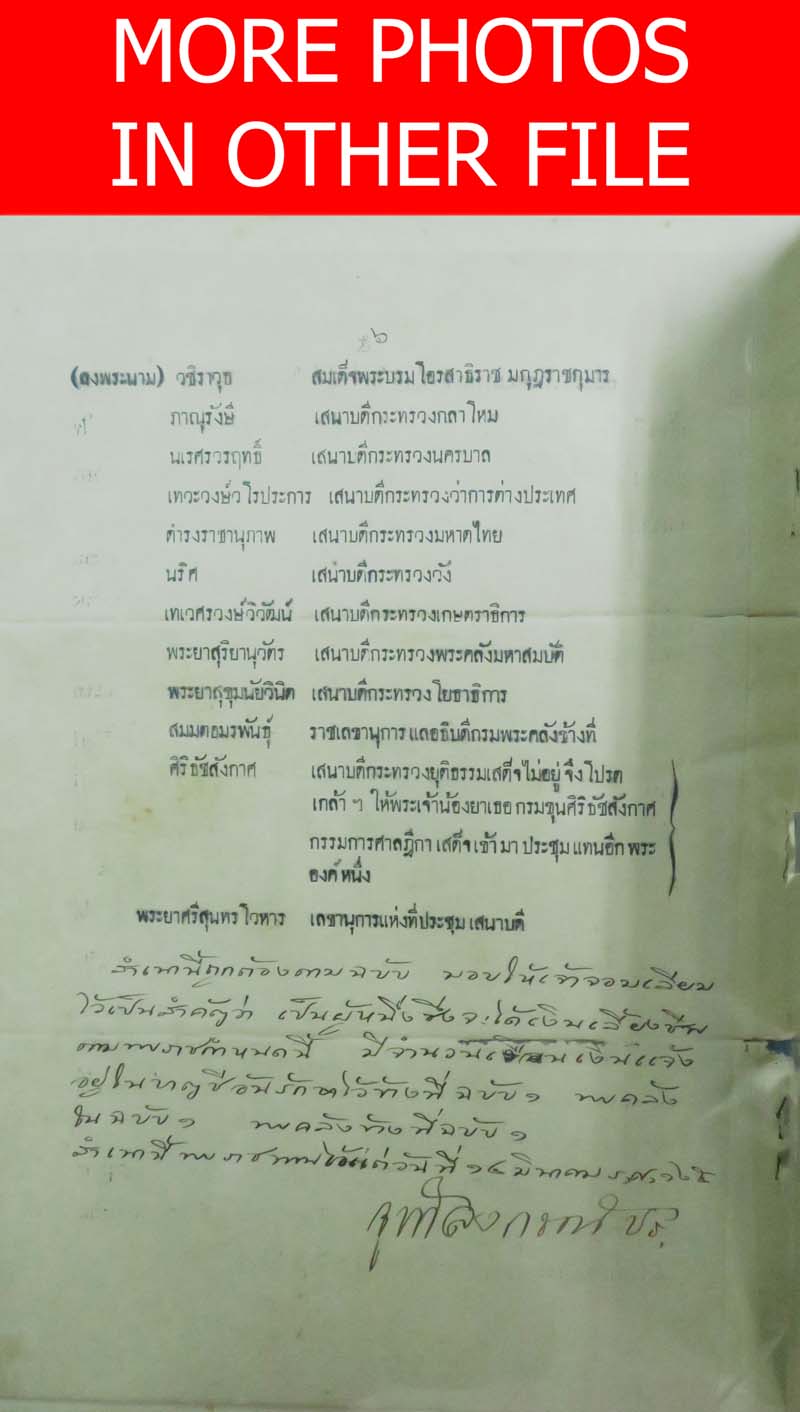 MORE PHOTOS
IN OTHER FILE
๖
(ลงพระนาม) วชิราวุธ สมเด็จพระบรมโอรสาธิราช มกุฎราชกุมาร
ภาณุรังษี เสนาบดีกระทรวงกลาโหม
นเรศรวรฤทธิ์ เสนาบดีกระทรวงนครบาล
เทวะวงษ์วโรประการ เสนาบดีกระทรวงว่าการต่างประเทศ
ดำรงราชานุภาพ เสนาบดีกระทรวงมหาดไทย
นริศ เสนาบดีกระทรวงวัง
เทเวศรวงษ์วิวัฒน์ เสนาบดีกระทรวงเกษตราธิการ
พระยาสุริยานุวัตร เสนาบดีกระทรวงพระคลังมหาสมบัติ
พระยาสุขุมนัยวินิต เสนาบดีกระทรวงโยธาธิการ
สมมตอมรพันธุ์ ราชเลขานุการ แลอธิบดีกรมพระคลังข้างที่
ศิริธัชสังกาศ เสนาบดีกระทรวงยุติธรรมเสด็จไม่อยู่ จึงโปรด
เกล้า ฯ ให้พระเจ้าน้องยาเธอ กรมขุนศิริธัชสังกาศ
กรรมการศาลฎีกา เสด็จเข้ามา ประชุม แทนอีก พระ
องค์หนึ่ง
พระยาศรีสุนทรโวหาร เลขานุการแห่งที่ประชุม เสนาบดี
สำเนานี้ถูกต้องตามฉบับ มอบให้เจ้าจอมเลียม
ไว้เป็นสำคัญว่า เป็นผู้หนึ่งซึ่งจะได้เงินเลี้ยงชีพ
ตามพระราชกำหนดนี้ มีจำนวน เงินแจ้ง
อยู่ในบาญชีอันรักษาไว้ทังที่ฉบับ ๑ พระคลัง
ใน ฉบับ ๑ พระคลังข้างที่ฉบับ ๑
สำเนานี้พระราชทานไว้แต่วันที่ ๑๔ มินาคม ร.ศ. ๑๒๕
จุฬาลงกรณ์ ปร.